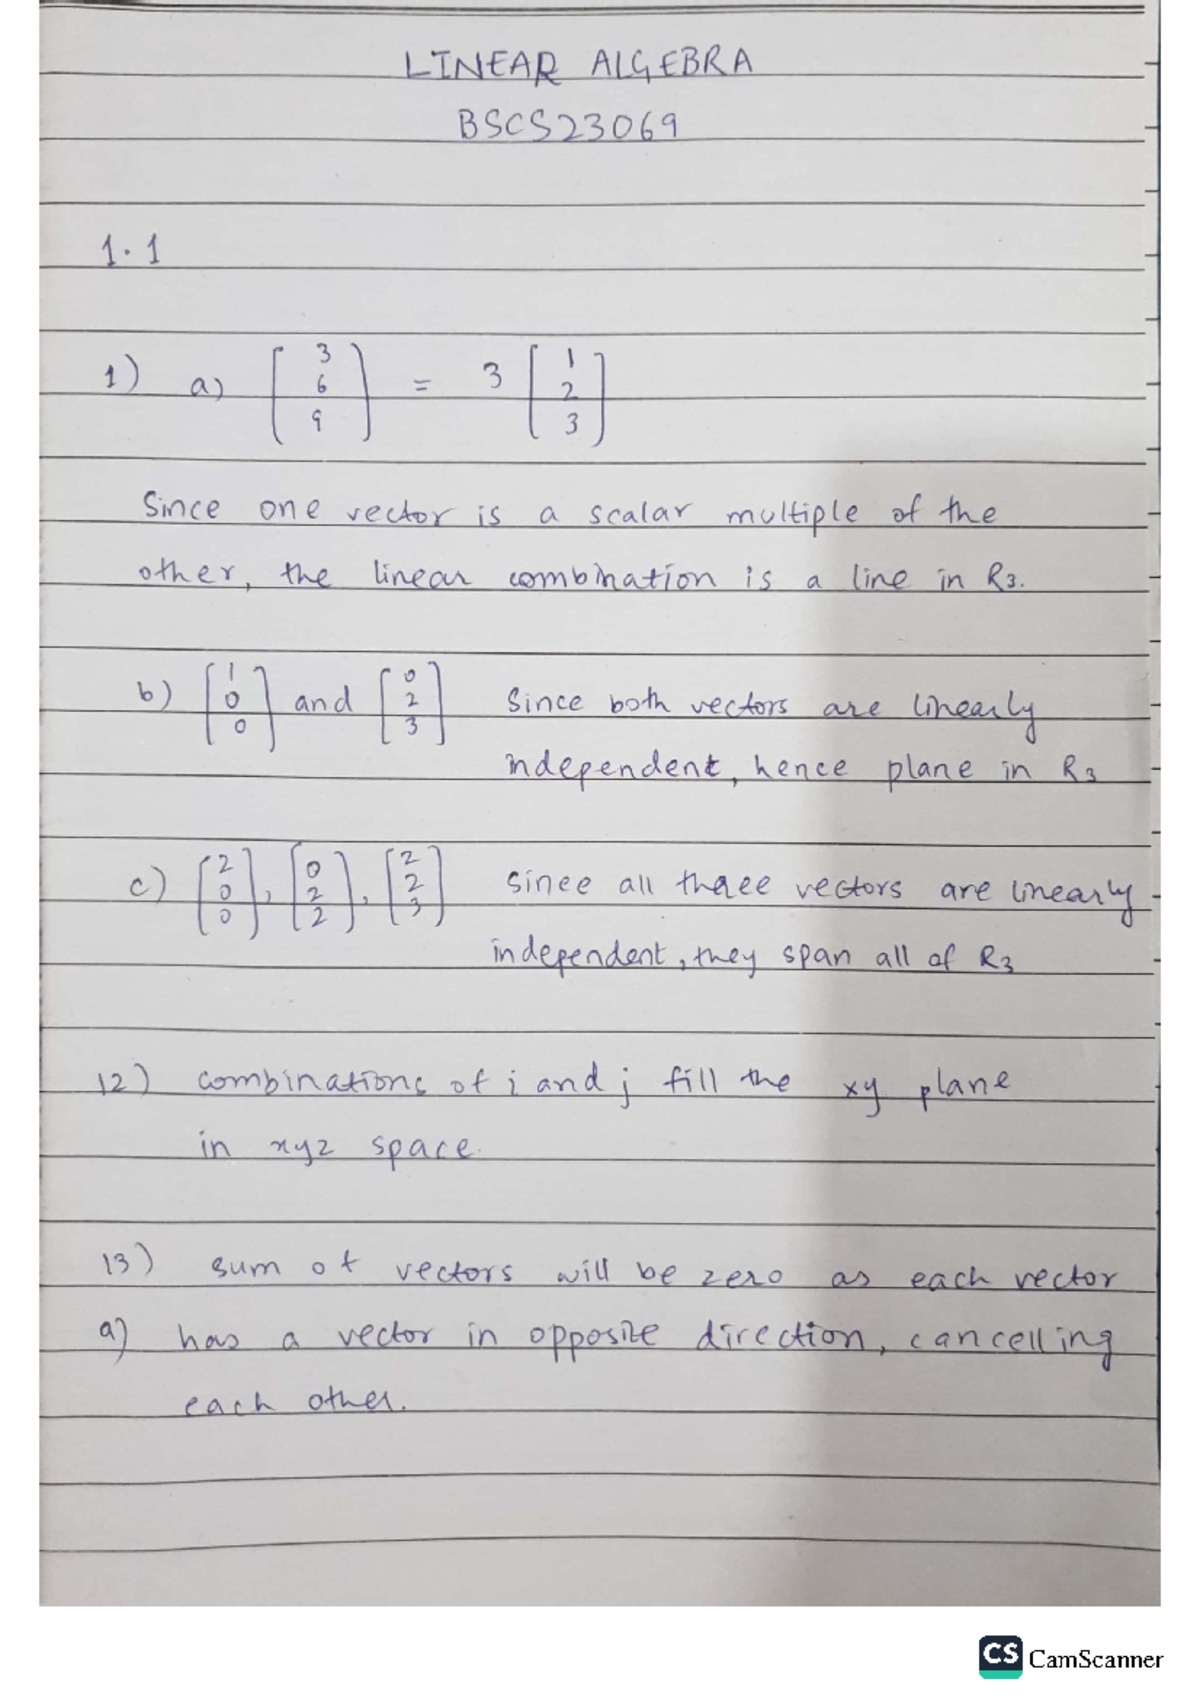 LINEAR ALGEBRA
BSCS23069
1.1
1) a) [3 6 9] = 3 [1 2 3]
Since one vector is a scalar multiple of the
other, the linear combination is a line in R3.
b) [1 0 0] and [0 2 3] Since both vectors are linearly
independent, hence plane in R3
c) [2 0 0], [0 2 2], [2 2 3] Since all three vectors are linearly
independent, they span all of R3
12) combinations of i and j fill the xy plane
in xyz space.
13) sum of vectors will be zero as each vector
a) has a vector in opposite direction, cancelling
each other.
CS CamScanner